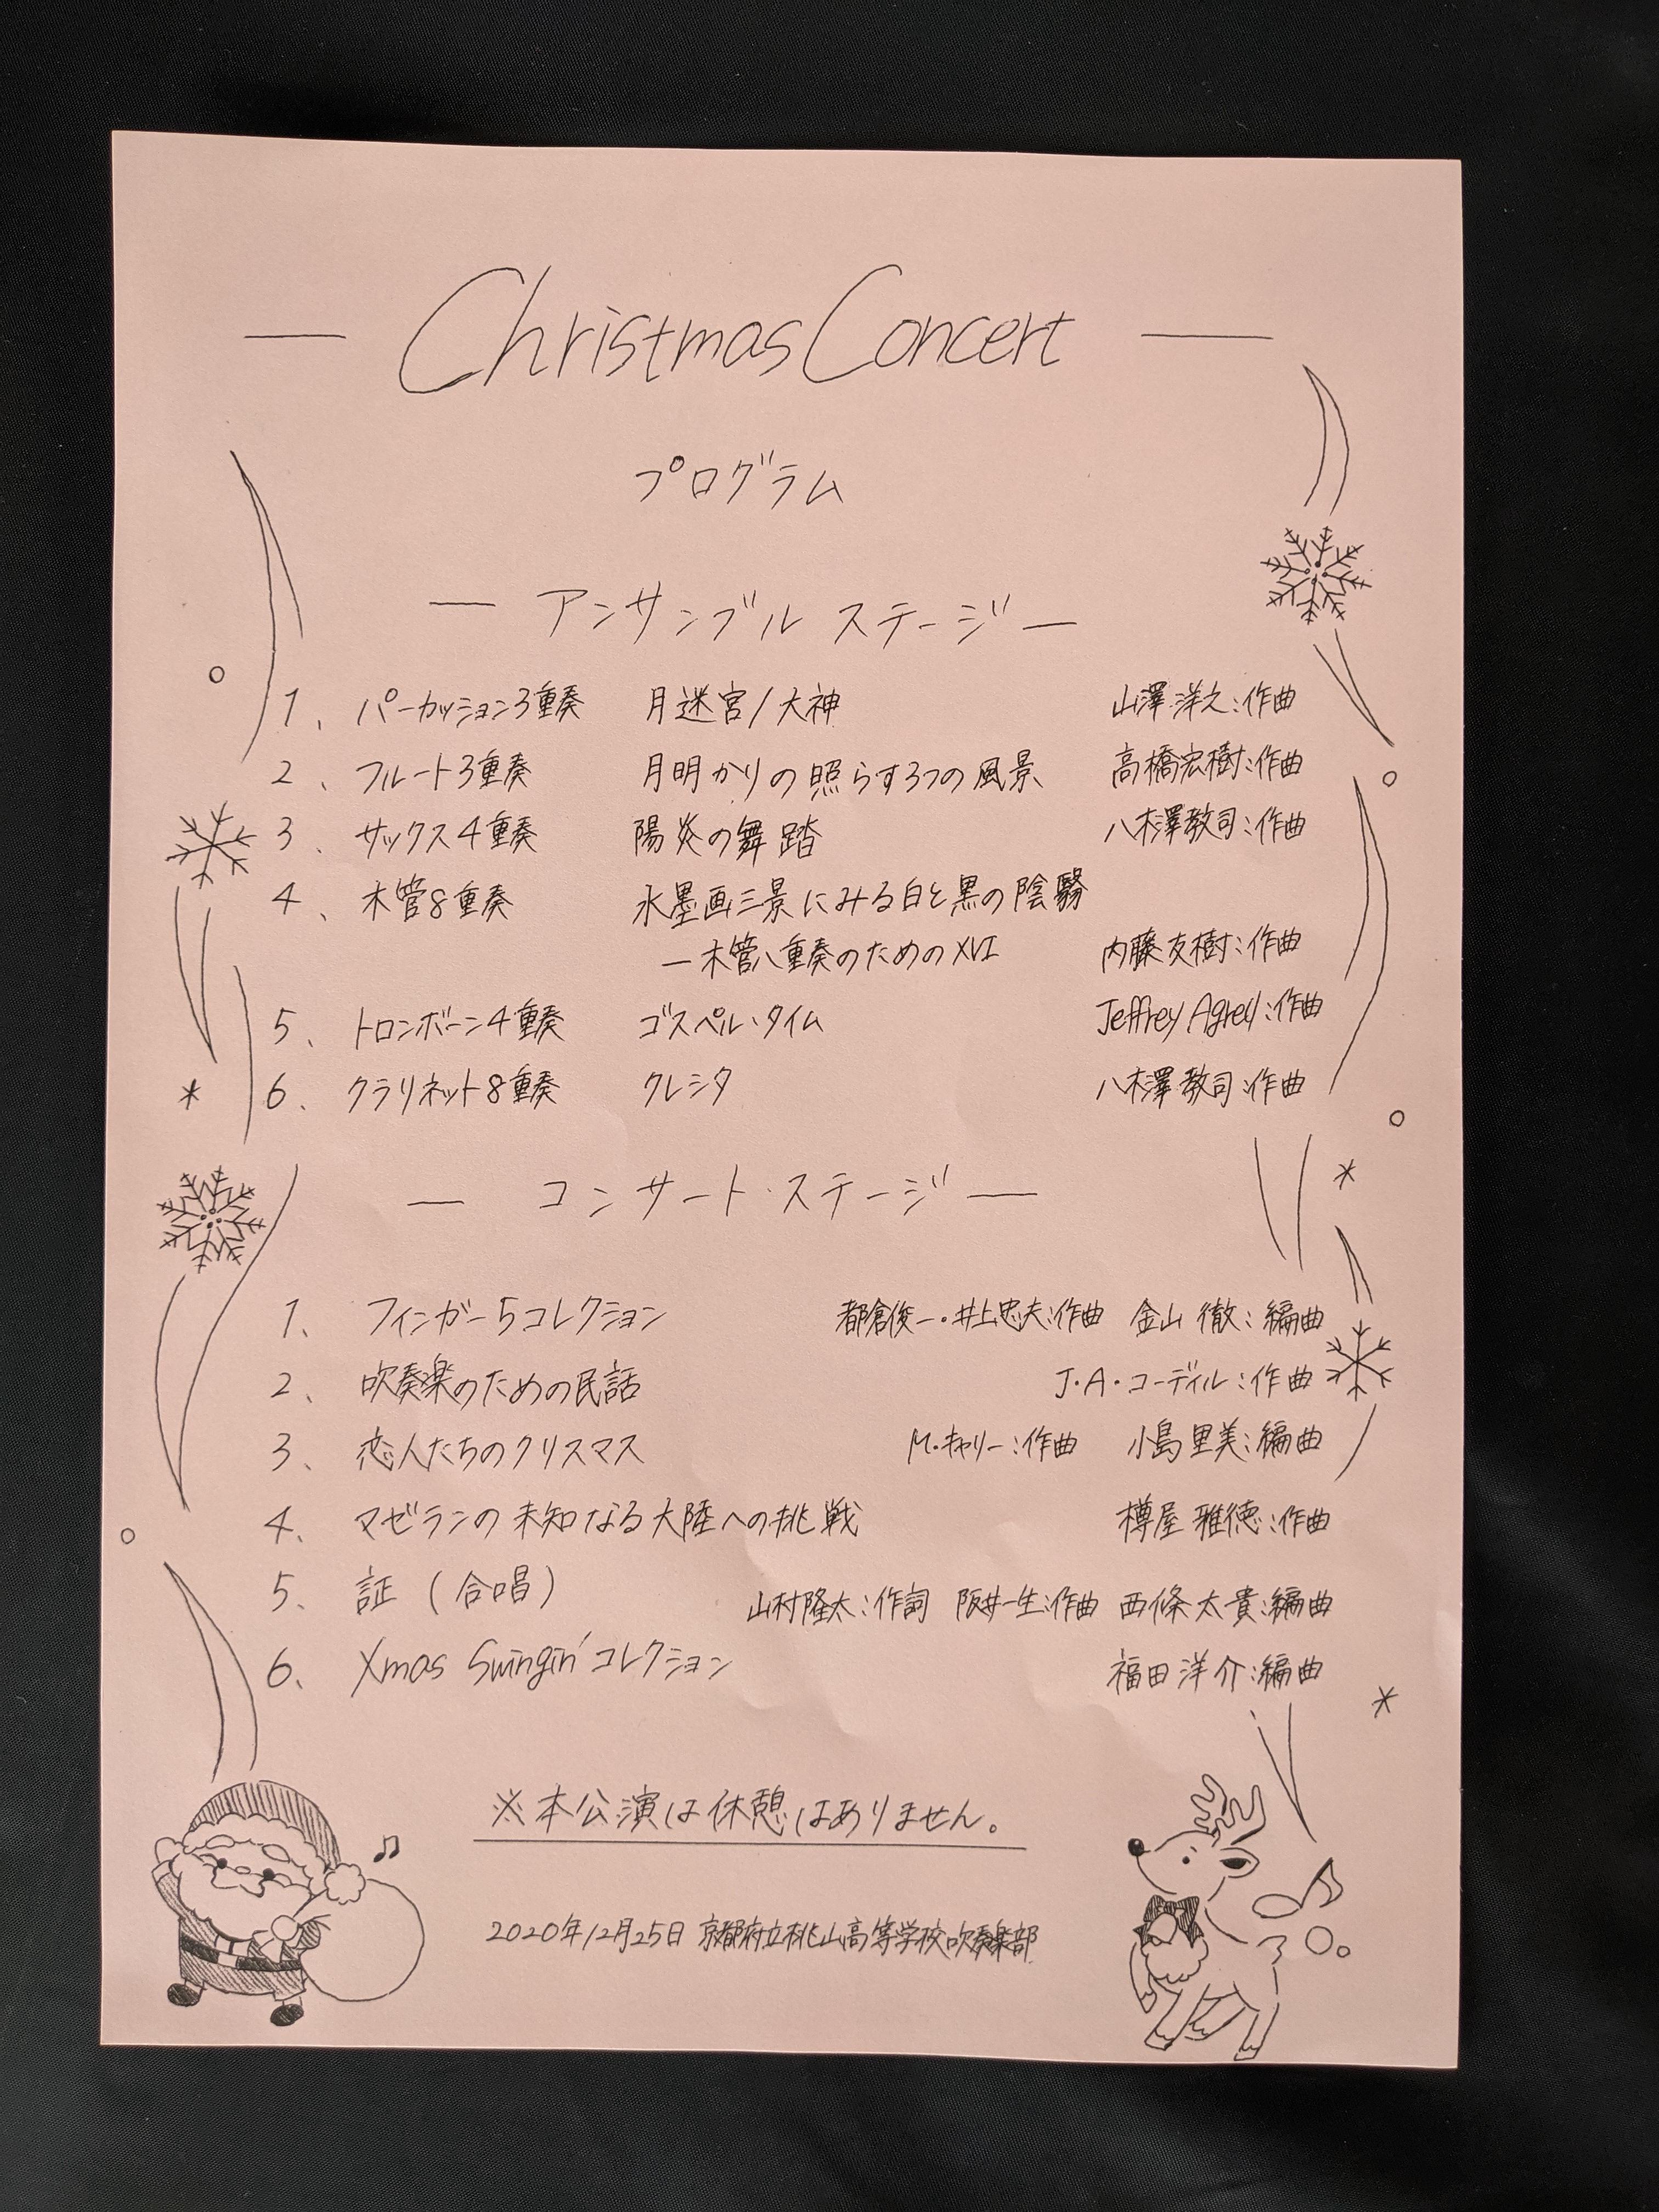 Christmas Concert
プログラム
— アンサンブル ステージ —
1、 パーカッション3重奏 月迷宮/大神 山澤洋之:作曲
2、 フルート3重奏 月明かりの照らす3つの風景 高橋宏樹:作曲
3、 サックス4重奏 陽炎の舞踏 八木澤教司:作曲
4、 木管8重奏 水墨画三景にみる白と黒の陰翳
—木管八重奏のためのXVI 内藤友樹:作曲
5、 トロンボーン4重奏 ゴスペル・タイム Jeffrey Agrell:作曲
6、 クラリネット8重奏 クレシタ 八木澤教司:作曲
— コンサート・ステージ —
1、 フィンガー5コレクション 都倉俊一・井上忠夫:作曲 金山 徹:編曲
2、 吹奏楽のための民話 J・A・コーディル:作曲
3、 恋人たちのクリスマス M・キャリー:作曲 小島里美:編曲
4、 マゼランの未知なる大陸への挑戦 樽屋雅徳:作曲
5、 証(合唱) 山村隆太:作詞 阪井一生:作曲 西條太貴:編曲
6、 Xmas Swingin'コレクション 福田洋介:編曲
※本公演は休憩はありません。
2020年12月25日 京都府立桃山高等学校吹奏楽部